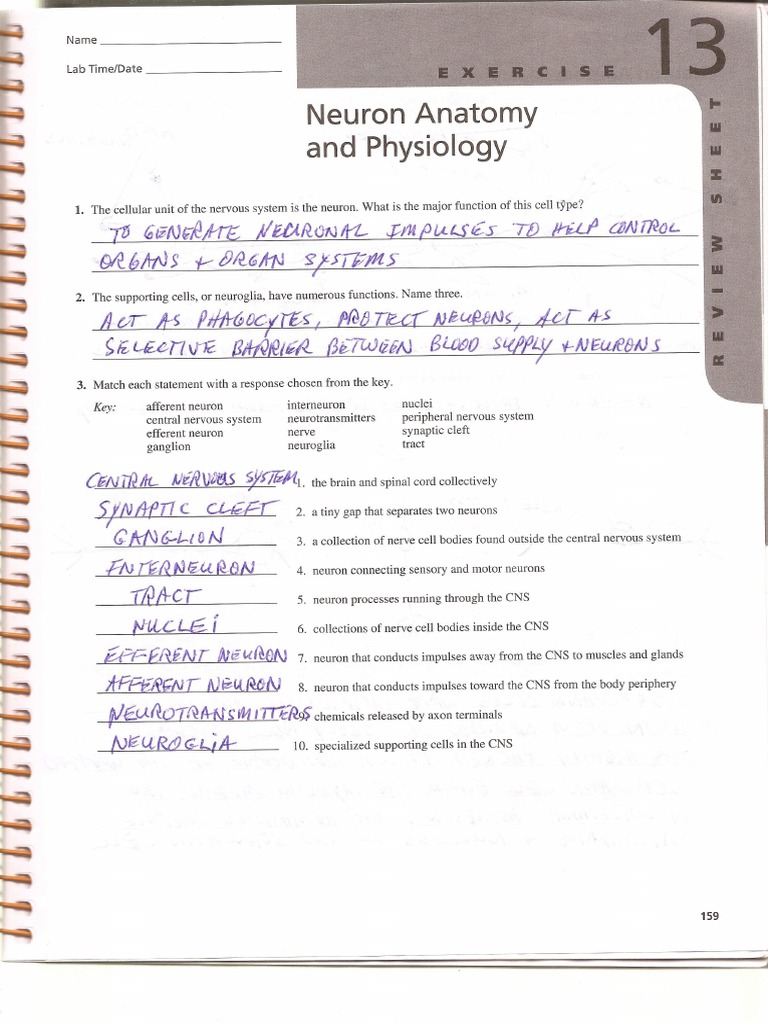 Name
Lab Time/Date
EXERCISE 13
REVIEW SHEET
Neuron Anatomy
and Physiology
1. The cellular unit of the nervous system is the neuron. What is the major function of this cell type?
TO GENERATE NEURONAL IMPULSES TO HELP CONTROL
ORGANS + ORGAN SYSTEMS
2. The supporting cells, or neuroglia, have numerous functions. Name three.
ACT AS PHAGOCYTES, PROTECT NEURONS, ACT AS
SELECTIVE BARRIER BETWEEN BLOOD SUPPLY + NEURONS
3. Match each statement with a response chosen from the key.
Key: afferent neuron interneuron nuclei
central nervous system neurotransmitters peripheral nervous system
efferent neuron nerve synaptic cleft
ganglion neuroglia tract
CENTRAL NERVOUS SYSTEM 1. the brain and spinal cord collectively
SYNAPTIC CLEFT 2. a tiny gap that separates two neurons
GANGLION 3. a collection of nerve cell bodies found outside the central nervous system
INTERNEURON 4. neuron connecting sensory and motor neurons
TRACT 5. neuron processes running through the CNS
NUCLEI 6. collections of nerve cell bodies inside the CNS
EFFERENT NEURON 7. neuron that conducts impulses away from the CNS to muscles and glands
AFFERENT NEURON 8. neuron that conducts impulses toward the CNS from the body periphery
NEUROTRANSMITTERS 9. chemicals released by axon terminals
NEUROGLIA 10. specialized supporting cells in the CNS
159